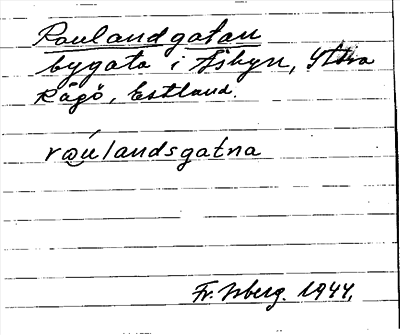 Roulandgatan
bygata i Åsbyn, Stora
Rågö, Estland.
rǿulandsgatna
Fr. Isberg. 1944.